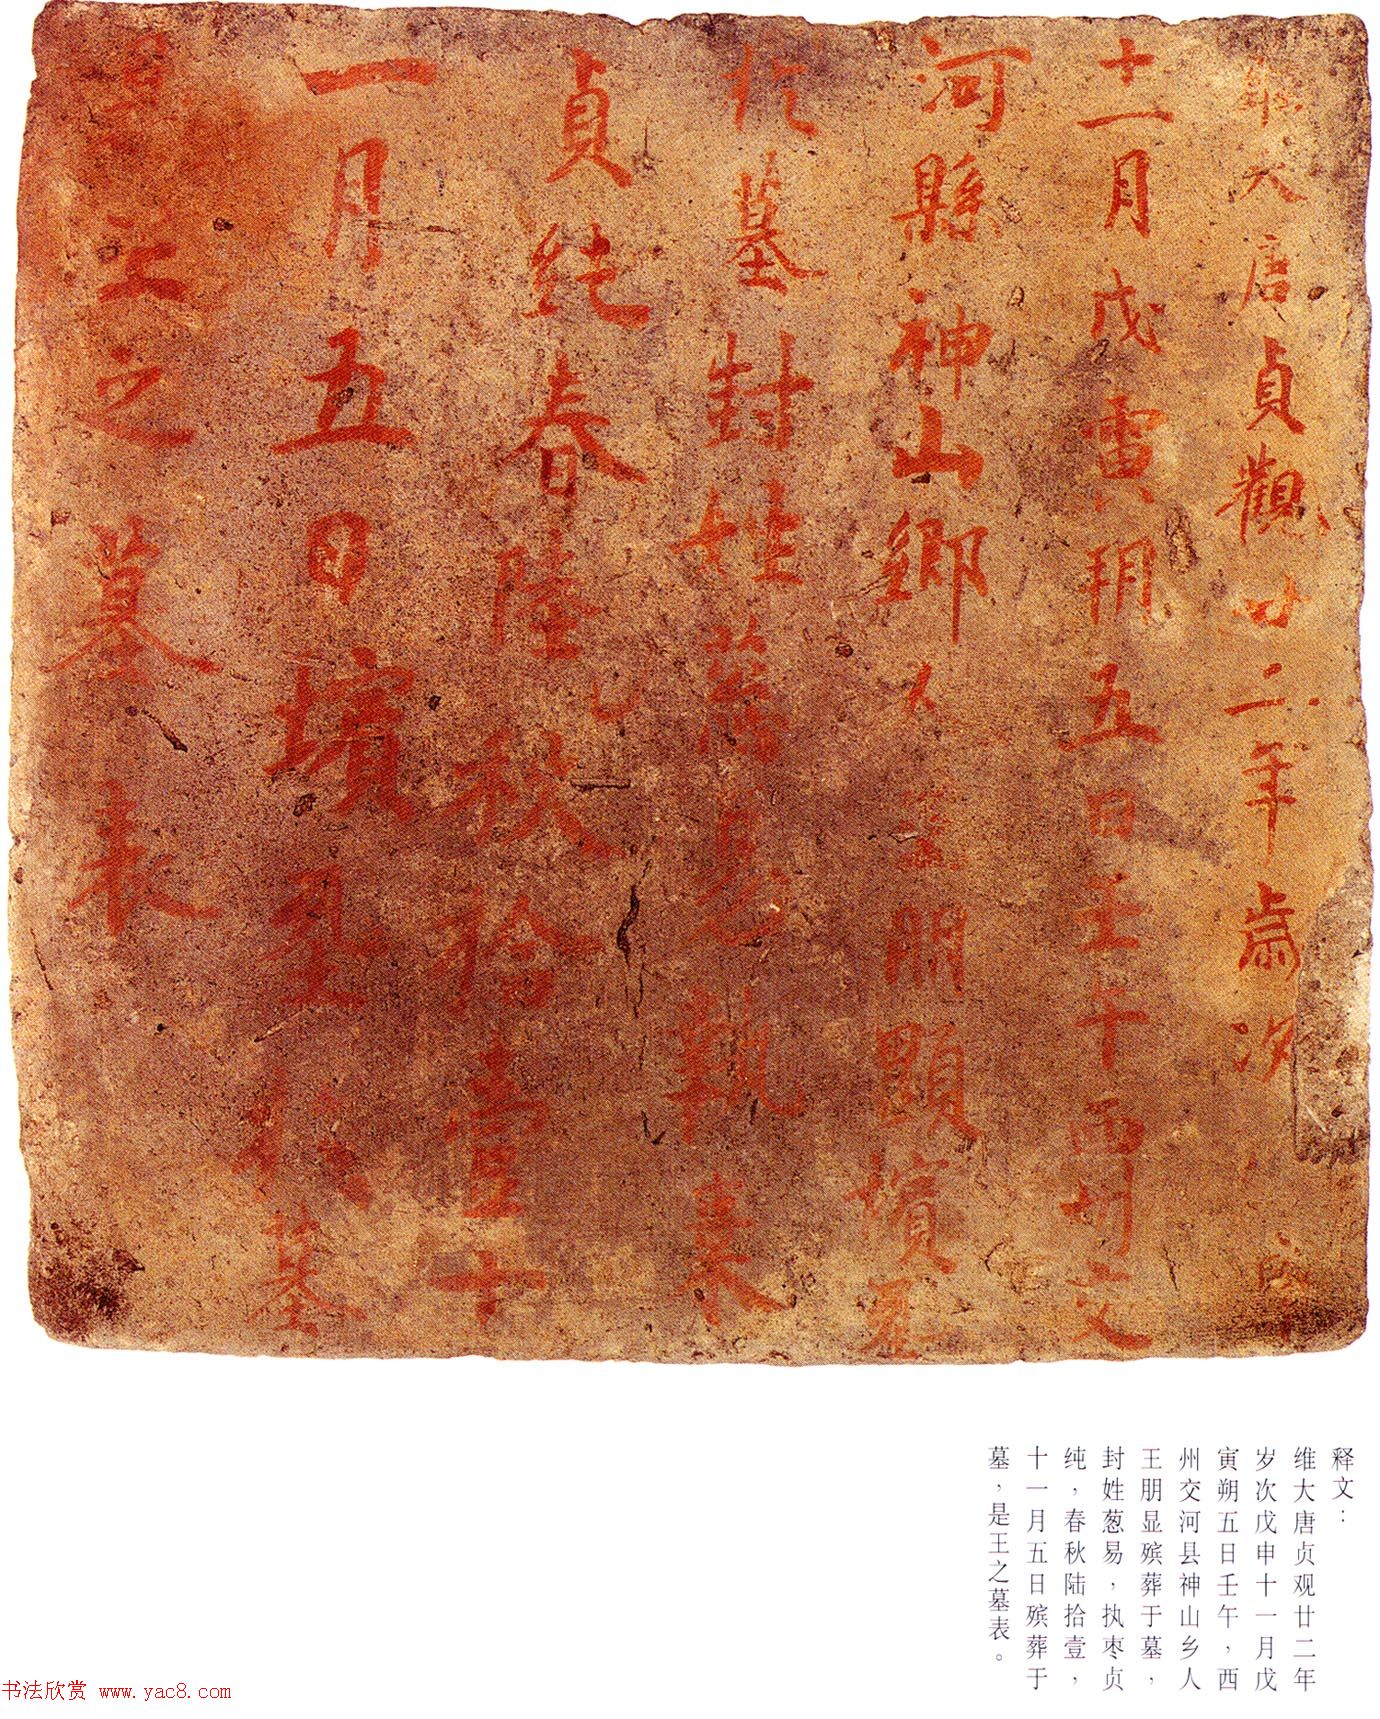 維大唐貞觀廿二年歲次
十一月戊寅朔五日壬午西州交
河縣神山鄉人王朋顯殯葬
於墓封姓蔥易執棗
貞純春陸秋拾壹十
一月五日殯葬於墓
是王之墓表
释文：
维大唐贞观廿二年
岁次戊申十一月戊
寅朔五日壬午，西
州交河县神山乡人
王朋显殡葬于墓，
封姓葱易，执枣贞
纯，春秋陆拾壹，
十一月五日殡葬于
墓，是王之墓表。
书法欣赏 www.yac8.com